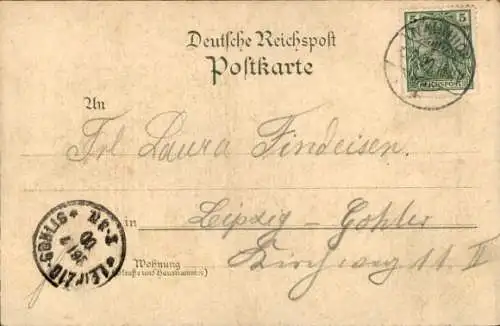 Deutsche Reichspost
Postkarte
5 5
REICHSPOST
An
Frl Laura Findeisen.
in Leipzig-Gohlis
Wohnung Kirchweg 11 II
(Straße und Hausnummer)
LEIPZIG-GOHLIS